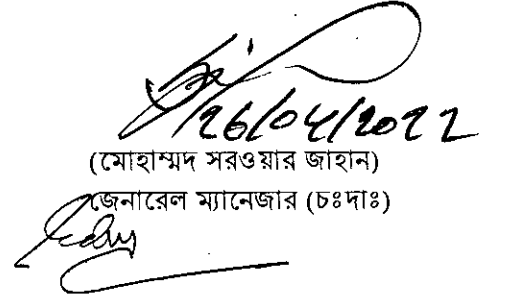 26/04/2022
(মোহাম্মদ সরওয়ার জাহান)
জেনারেল ম্যানেজার (চঃদাঃ)